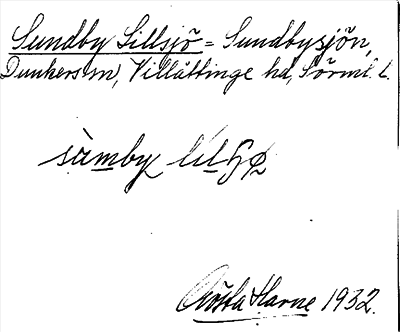 Sundby Lillsjö = Sundbysjön,
Dunkers sn, Villåttinge hd, Sörml. l.
sàmby lil
Gösta Harne 1932.